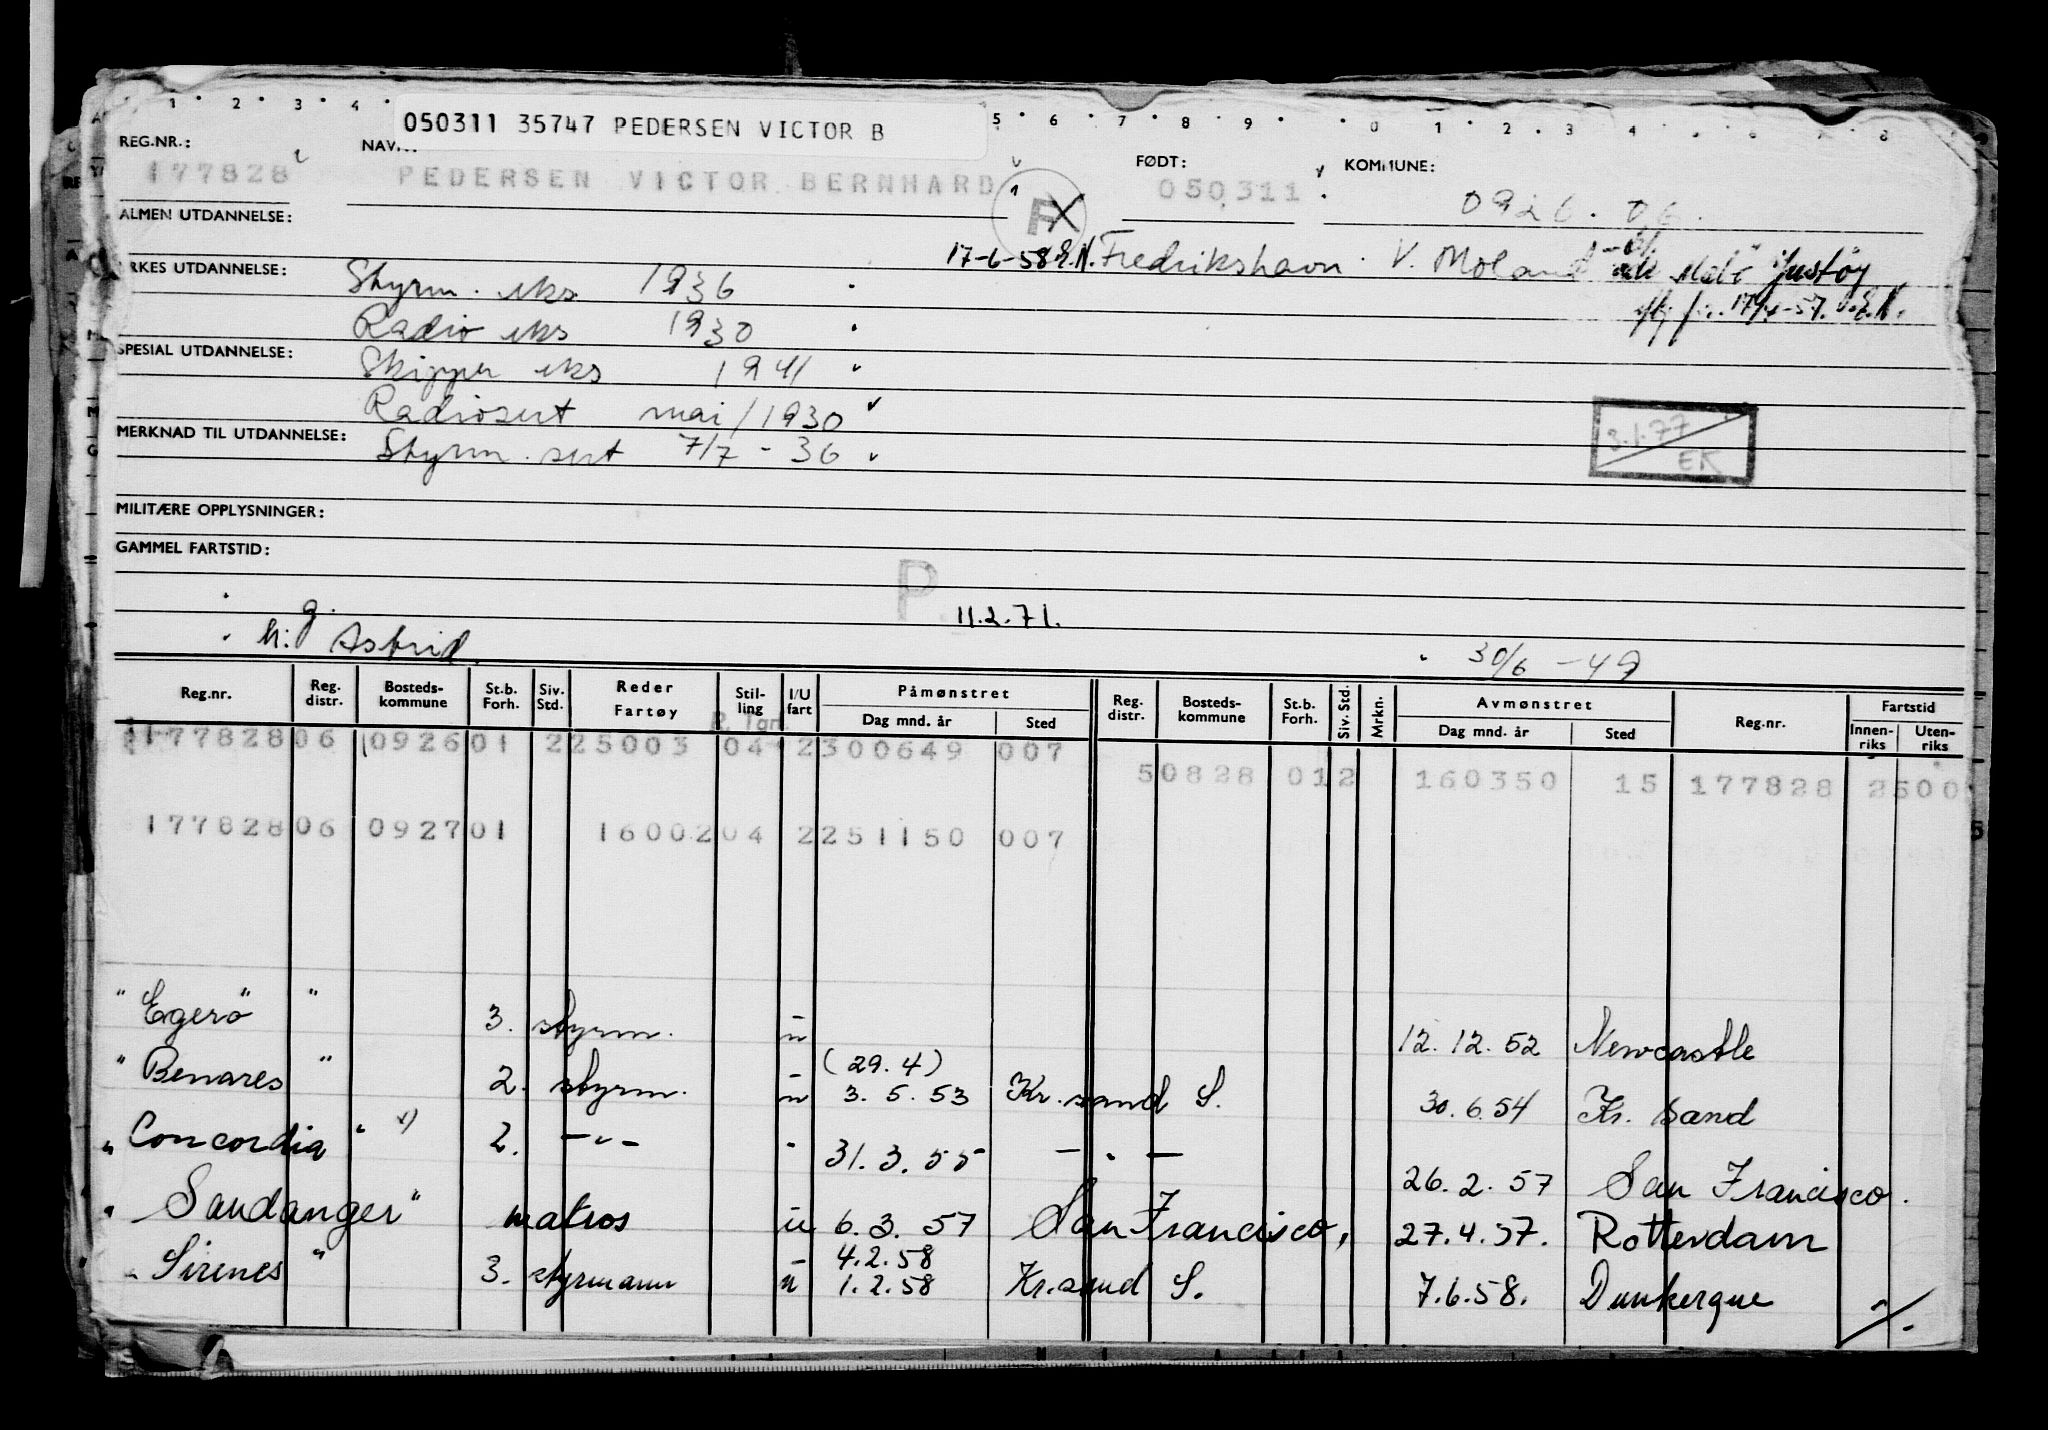 1 2 3 4 5 6 7 8 9 0 1 2 3 4
050311 35747 PEDERSEN VICTOR B
REG.NR.: FØDT: KOMMUNE:
177828 PEDERSEN VICTOR BERNHARD 050311 0926.06.
ALMEN UTDANNELSE:
17-6-58 E.N. Fredrikshavn. V. Moland
YRKES UTDANNELSE: Styrm. eks 1936
17/4-57. E.N.
Radio eks 1930
SPESIAL UTDANNELSE: Skipper eks 1941
Radiosert mai/1930
MERKNAD TIL UTDANNELSE: Styrm. sert 7/7 - 36
3.1.77 EK
MILITÆRE OPPLYSNINGER:
GAMMEL FARTSTID:
P 11.2.71.
g.
h: Astrid. 30/6 - 49
Reg.nr. Reg. distr. Bosteds-kommune St.b. Forh. Siv. Std. Reder Fartøy Stil-ling I/U fart Påmønstret Dag mnd. år Sted Reg. distr. Bosteds-kommune St.b. Forh. Siv. Std. Mrkn. Avmønstret Dag mnd. år Sted Reg.nr. Fartstid Innen-riks Uten-riks
177828 06 0926 01 2 25003 04 2 300649 007
50828 012 160350 15 177828 2500
177828 06 0927 01 16002 04 2 251150 007
"Egerö" " 3. styrm. u 12.12.52 Newcastle
"Benares " 2. styrm. u (29.4) 3.5.53 Kr.sand S. 30.6.54 Kr. Sand
"Concordia " 2. -"- - 31.3.55 - " - 26.2.57 San Francisco.
" Sandanger " matros u 6.3.57 San Francisco, 27.4.57. Rotterdam
4.2.58
" Sirenes " 3. styrmann u 1.2.58 Kr.sand S. 7.6.58. Dunkerque